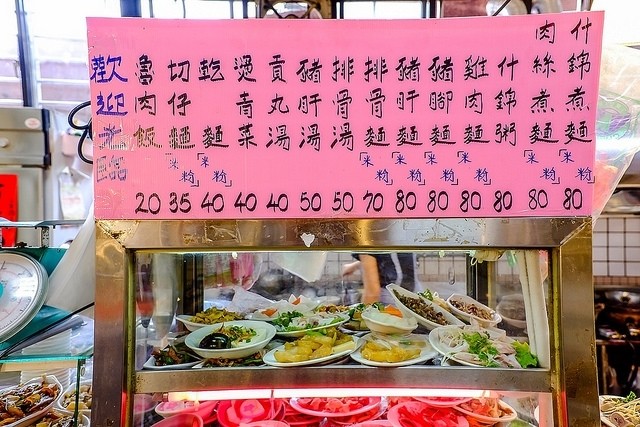 歡迎光臨
魯肉飯 20
切仔麵「米粉」 35
乾麵「米粉」 40
燙青菜 40
貢丸湯 40
豬肝湯 50
排骨湯 50
排骨麵「米粉」 70
豬肝麵「米粉」 80
豬腳麵「米粉」 80
雞肉麵「米粉」 80
什錦粥 80
肉絲煮麵「米粉」 80
什錦煮麵「米粉」 80